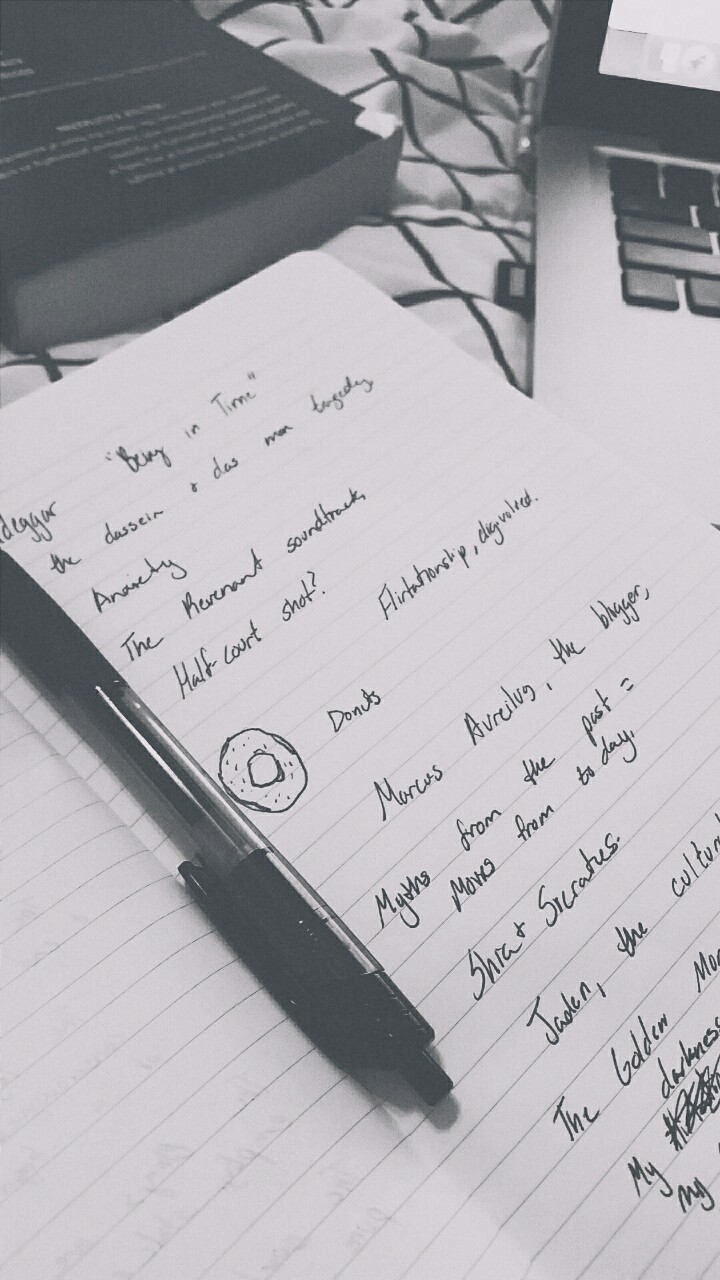 "Being in Time"
deggar
the dassein & das man tragedy
Anxiety
The Revenant soundtrack
Half-court shot?
Flirtationship, digivolved.
Donuts
Marcus Aureilus, the blogger,
Myths from the past =
Movies from today.
Shia & Socrates.
Jaden, the cultur
The Golden
darkness
My
my